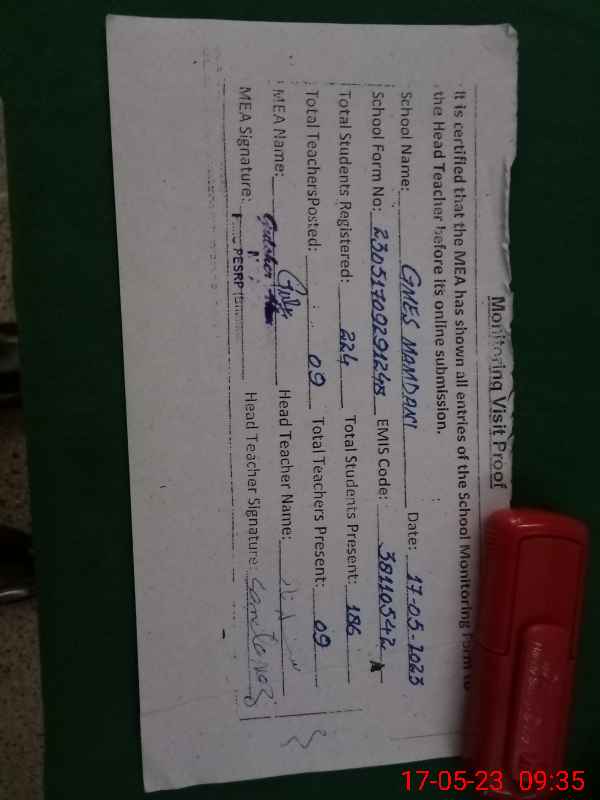 Monitoring Visit Proof
It is certified that the MEA has shown all entries of the School Monitoring Form to
the Head Teacher before its online submission.
School Name: GMES MAMDANI Date: 17-05-2023
School Form No: EMIS Code: 38110542
Total Students Registered: 224 Total Students Present: 186
Total TeachersPosted: 09 Total Teachers Present: 09
MEA Name: Head Teacher Name:
MEA Signature: Head Teacher Signature:
PESRP
17-05-23 09:35